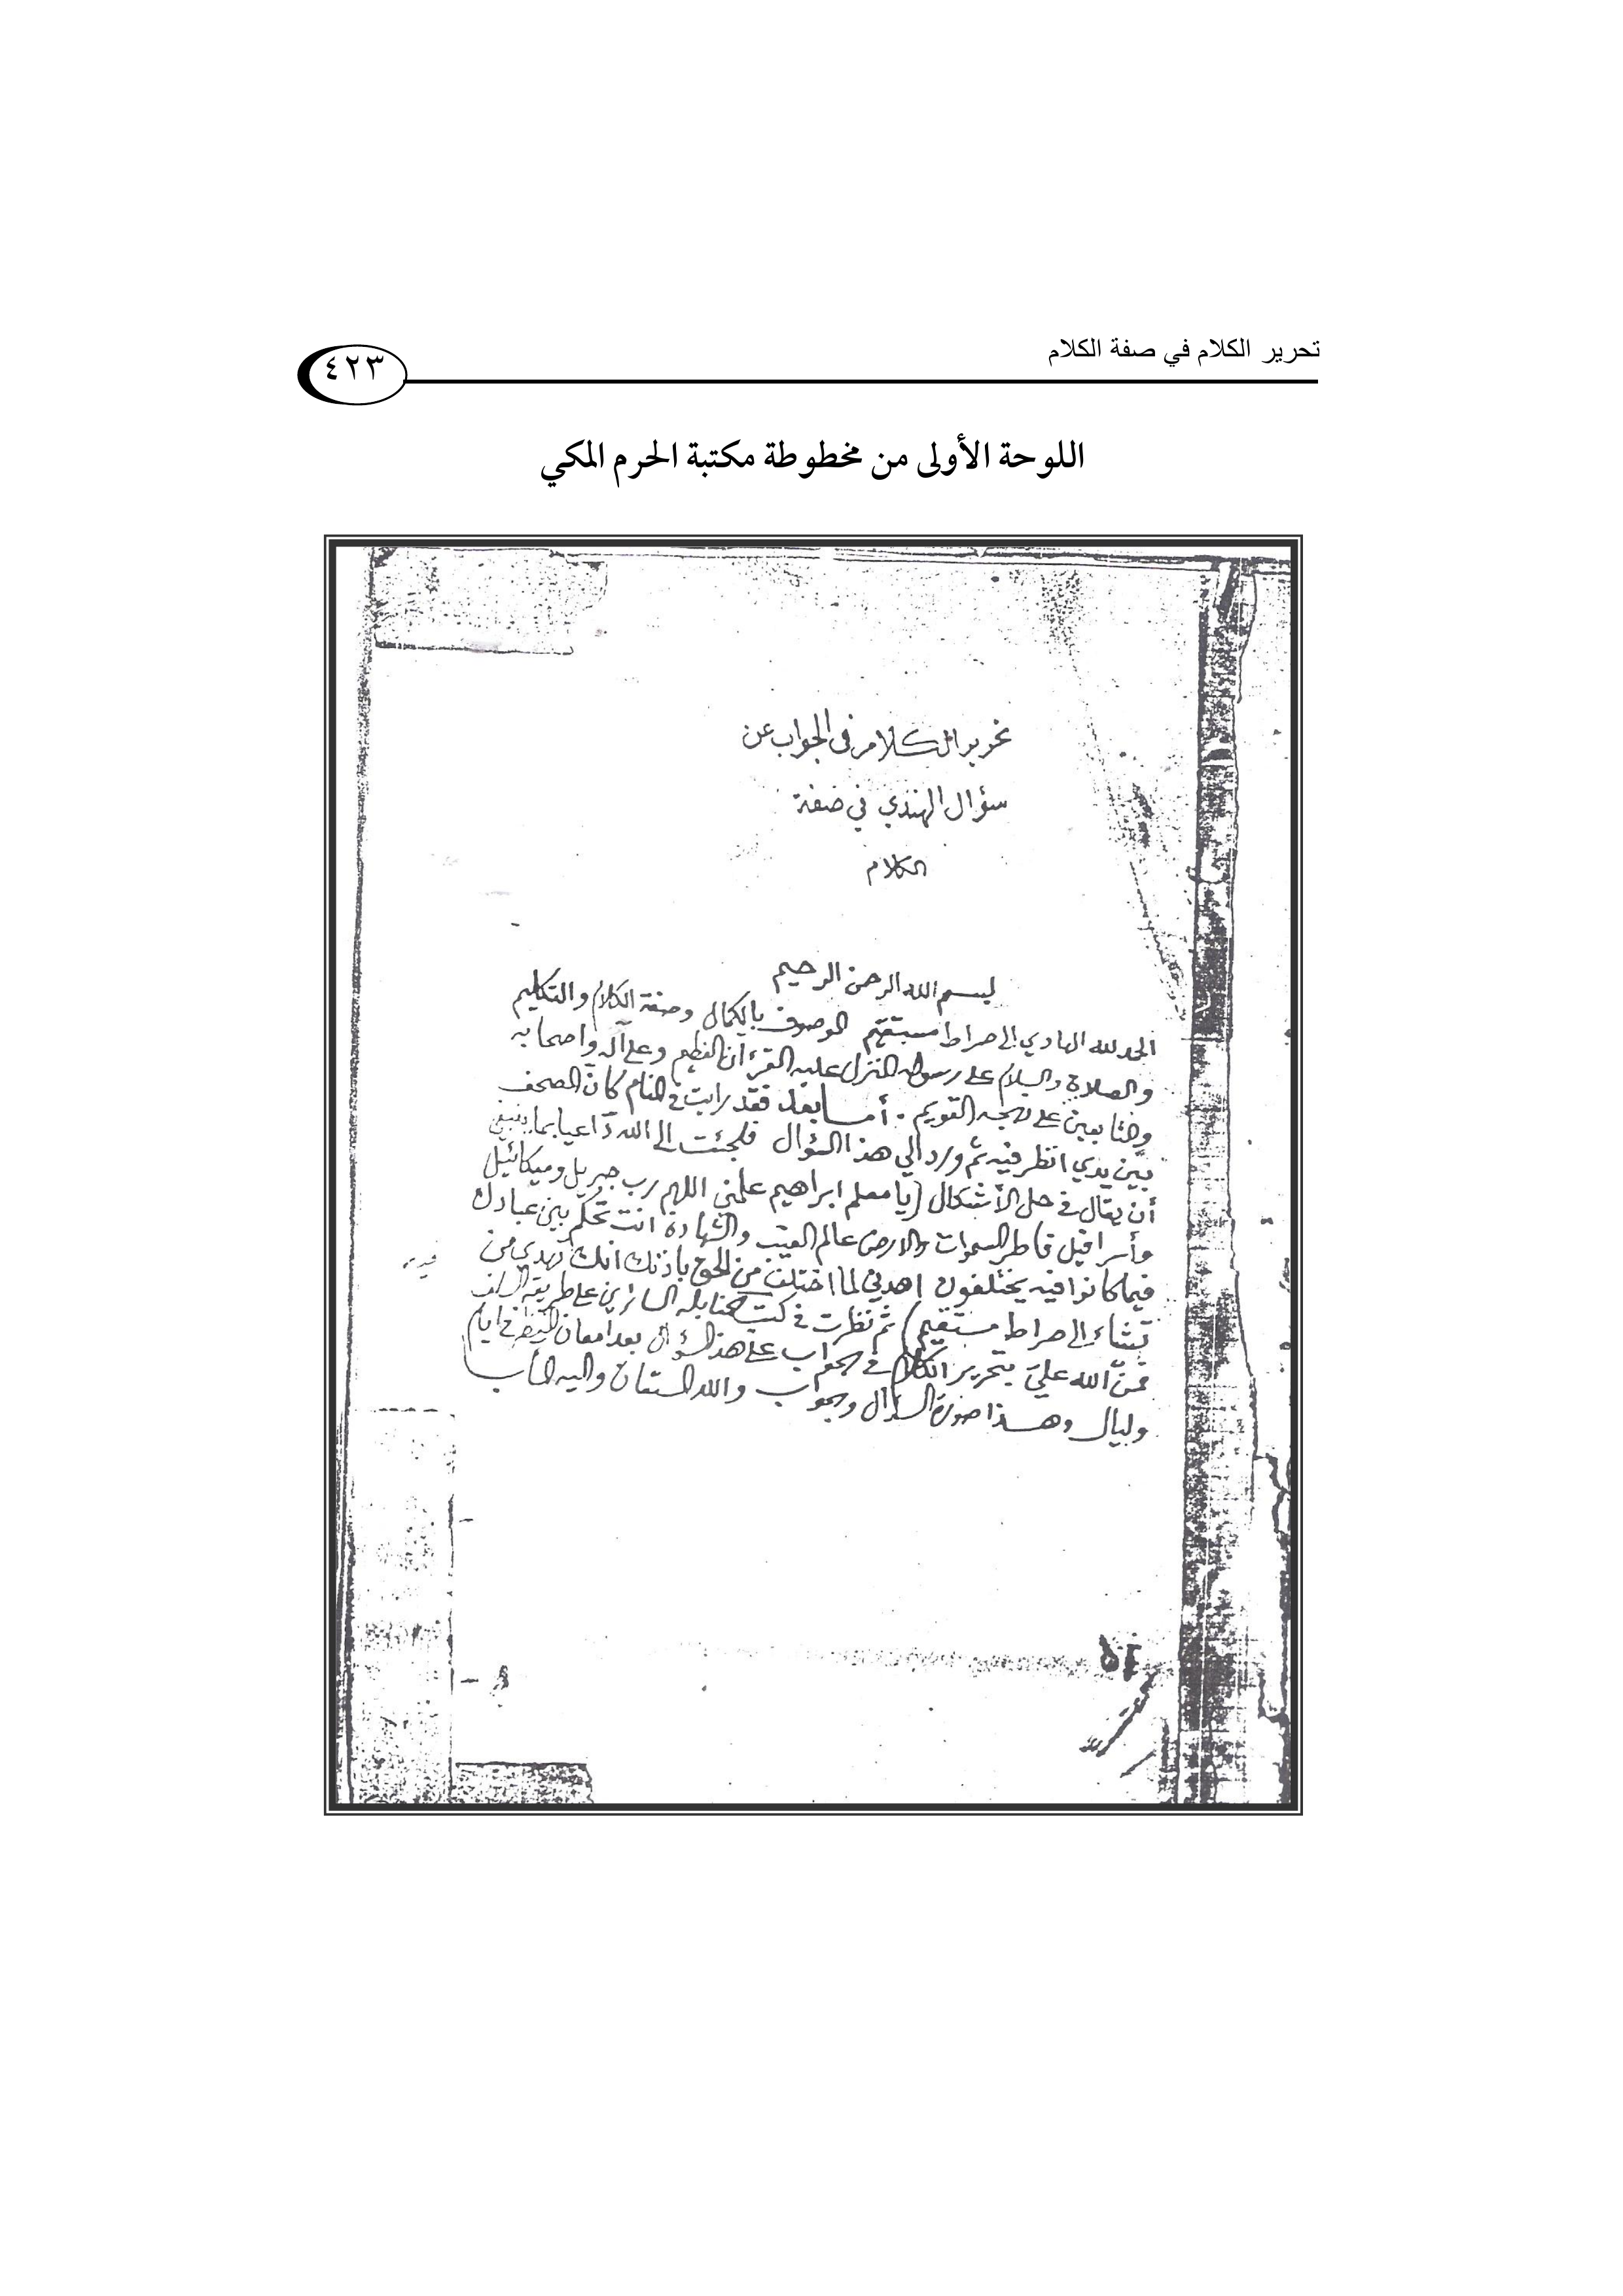 تحرير الكلام في صفة الكلام
٤٢٣
اللوحة الأولى من مخطوطة مكتبة الحرم المكي
تحرير الكلام في الجواب عن
سؤال الهندي في صفة
الكلام
بسم الله الرحمن الرحيم
الحمد لله الهادي إلى صراط مستقيم الموصوف بالكمال وصفة الكلام والتكليم
والصلاة والسلام على رسوله المنزل عليه القرءان العظيم وعلى آله واصحابه
والتابعين على نهجه القويم . أما بعد فقد رايت في المنام كأن المصحف
بين يدي انظر فيه ثم ورد الي هذا السؤال فلجئت الى الله داعيا بما ينبغي
أن يقال في حل الأشكال (يا معلم ابراهيم علمني اللهم رب جبريل وميكائيل
وأسرافيل فاطر السموات والارض عالم الغيب والشهادة انت تحكم بين عبادك
فيما كانوا فيه يختلفون اهدني لما اختلف من الحق باذنك انك تهدي من
تشاء إلى صراط مستقيم) ثم نظرت في كتب الحنابله السائرين على طريقة السلف
فمنّ الله عليّ بتحرير الكلام في الجواب على هذ السؤال بعد امعان النظر في ايام
وليال وهذا صورة السؤال والجواب والله المستعان واليه المأب